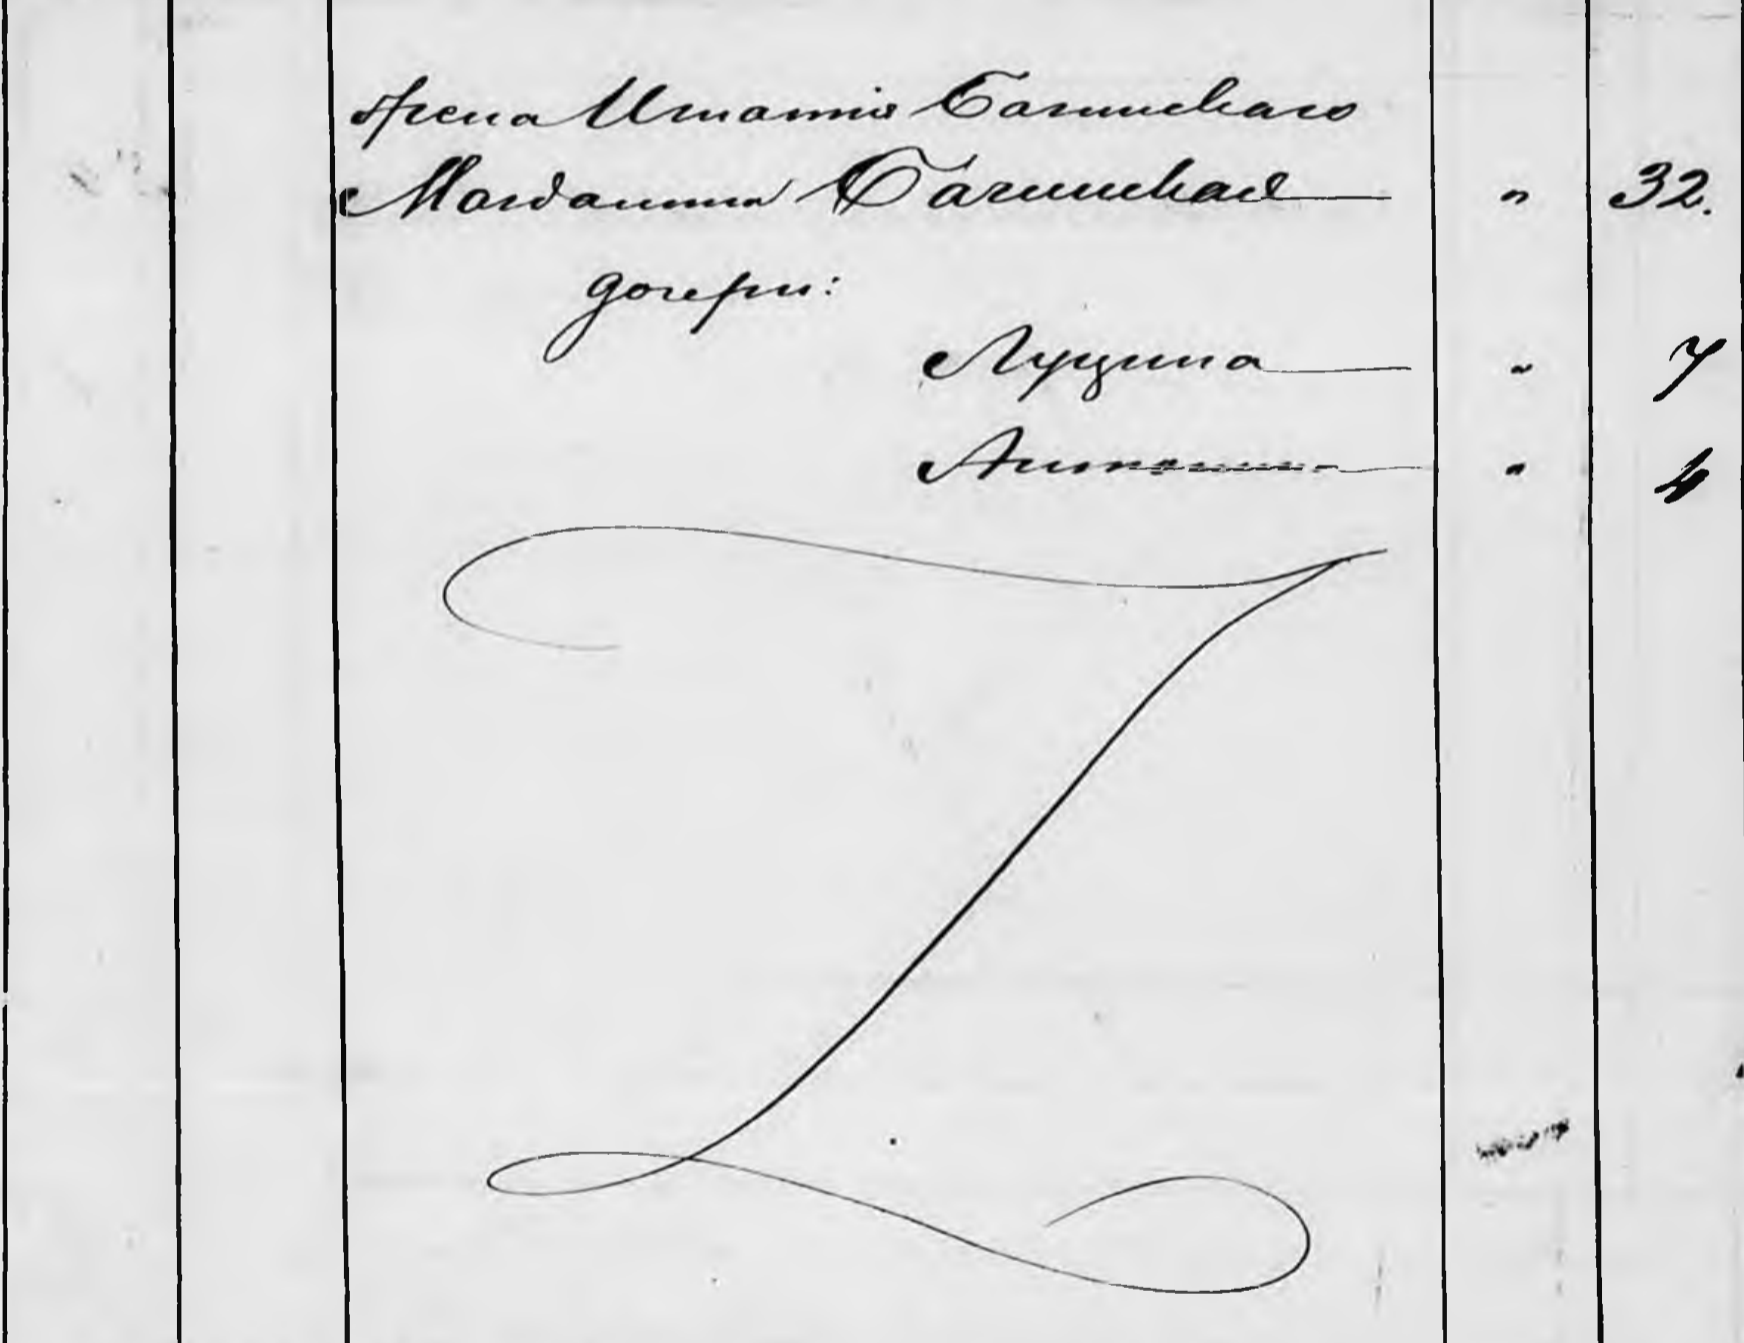 Жена Игнатія Багинскаго
Магдалина Багинская " 32.
дочери:
Луцина " 7
Антонина " 4